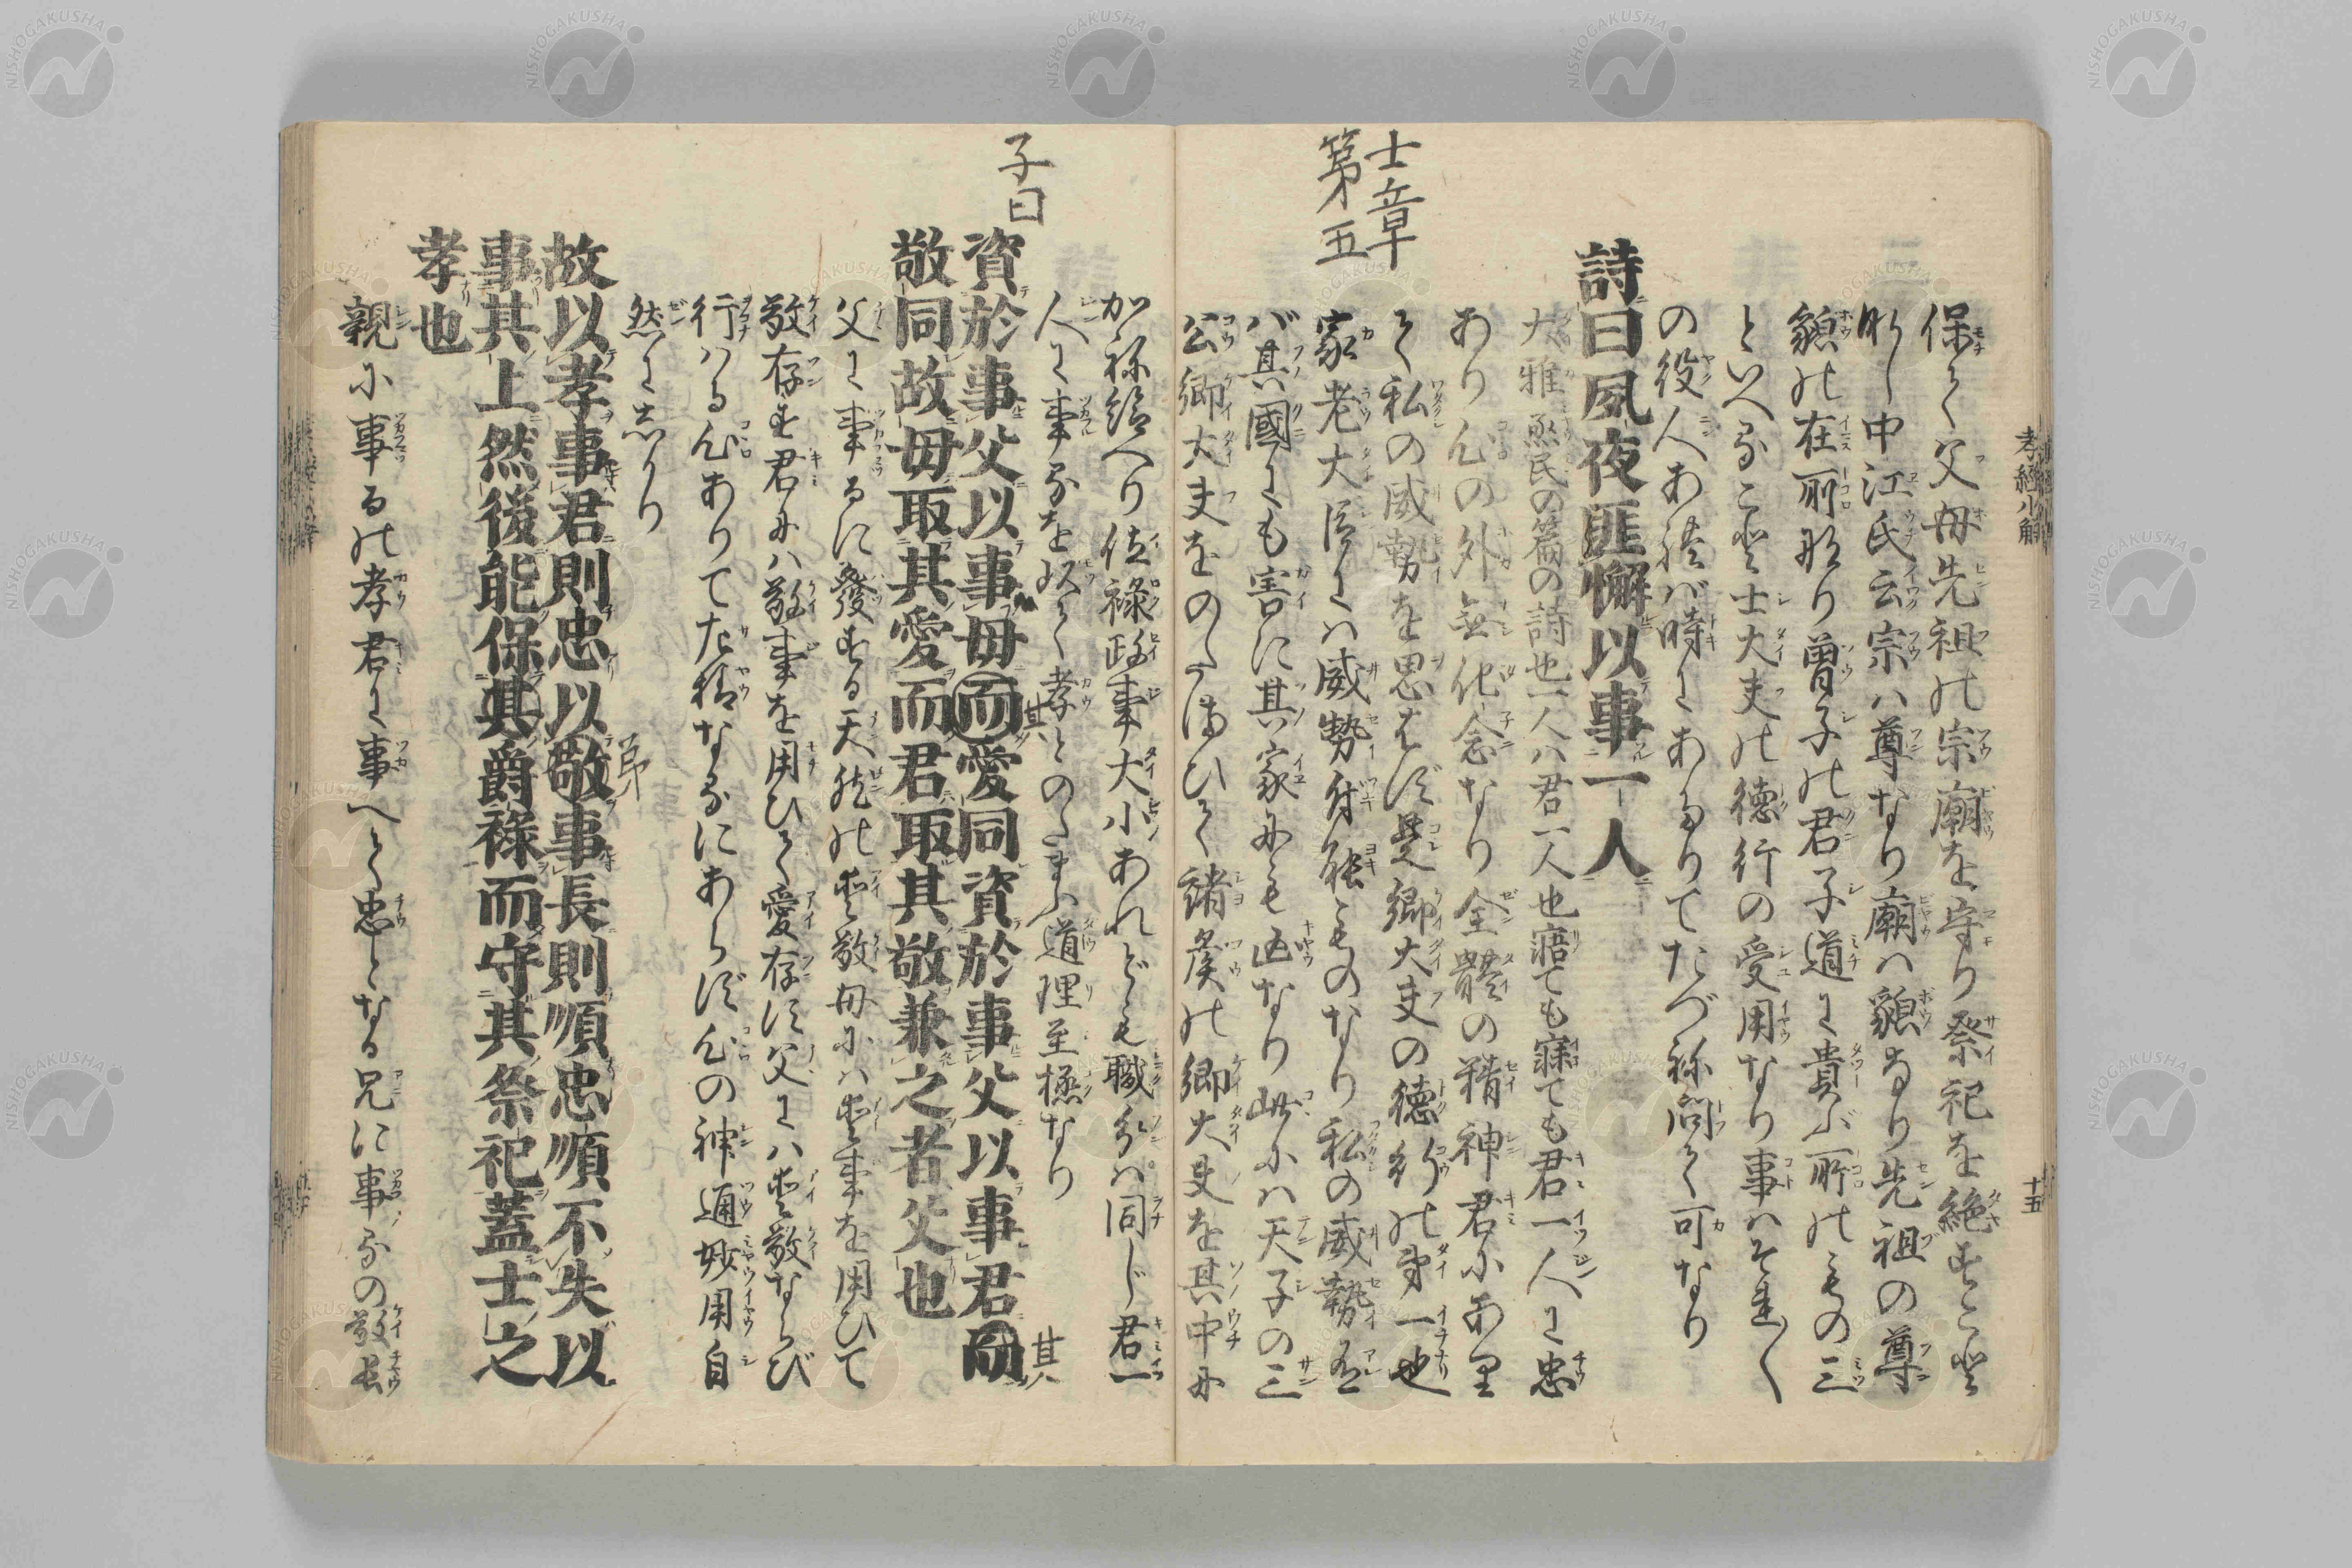 孝經小解
十五
保て父母先祖の宗廟を守り祭祀を絶ざること
なし中江氏云宗は尊なり廟は貌なり先祖の尊
貌の在所なり曽子の君子道に貴ぶ所のもの三
といへることぞ士大夫の徳行の受用なり事はそれ〱
の役人あれば時にあたりてたづね問て可なり
詩曰夙夜匪懈以事一人
大雅烝民の篇の詩也一人は君一人也寤ても寐ても君一人に忠
あり心の外無他念なり全體の精神君にあり
て私の威勢を思はず是卿大夫の徳行の第一也
家老大臣には威勢付能ものなり私の威勢有
ば其國にも害に其家にも凶なり此には天子の三
公卿大夫をのたまひて諸侯の卿大夫を其中に
士章
第五
かね給へり位祿政事大小あれども職分は同じ君一
人に事るを以て孝とのたまふ道理至極なり
子曰
資於事父以事母而愛同資於事父以事君而
其
其
敬同故母取其愛而君取其敬兼之者父也
父に事るに發する天然の愛敬母には愛事を用ひて
敬存す君には敬事を用ひて愛存す父には愛敬ならび
行はる心ありてた様なるにあらず心の神通妙用自
然にしかり
故以孝事君則忠以敬事長則順忠順不失以
弟
事其上然後能保其爵祿而守其祭祀蓋士之
孝也
親に事るの孝君に事へて忠となる兄に事るの敬長